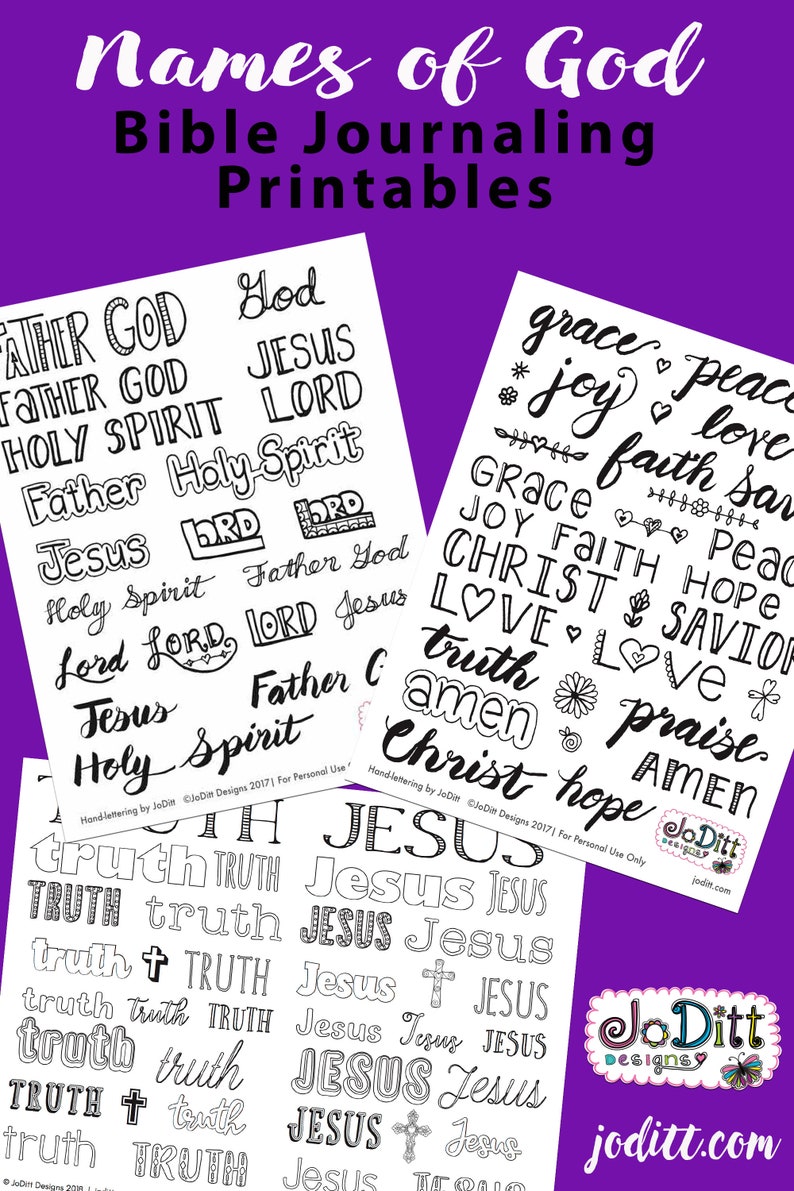 Names of God
Bible Journaling
Printables
FATHER GOD
God
FATHER GOD
JESUS
HOLY SPIRIT
LORD
Father
Holy Spirit
Jesus
LORD
LORD
Holy Spirit
Father God
Lord
LORD
LORD
Jesus
Jesus
Father G
Holy Spirit
Hand-lettering by JoDitt ©JoDitt Designs 2017| For Personal Use Only
grace
peace
joy
love
faith
Sav
GRACE
JOY
FAITH
Peac
CHRIST
HOPE
LOVE
SAVIOR
LOVE
truth
amen
praise
Christ
hope
AMEN
Hand-lettering by JoDitt ©JoDitt Designs 2017| For Personal Use Only
JoDitt
DESIGNS
joditt.com
TRUTH
JESUS
truth
TRUTH
Jesus
JESUS
TRUTH
truth
JESUS
Jesus
truth
TRUTH
Jesus
JESUS
truth
truth
TRUTH
Jesus
Jesus
JESUS
truth
truth
JESUS
Jesus
TRUTH
truth
JESUS
Jesus
truth
TRUTH
Jesus
JESUS
JoDitt Designs 2018
JoDitt
DESIGNS
joditt.com